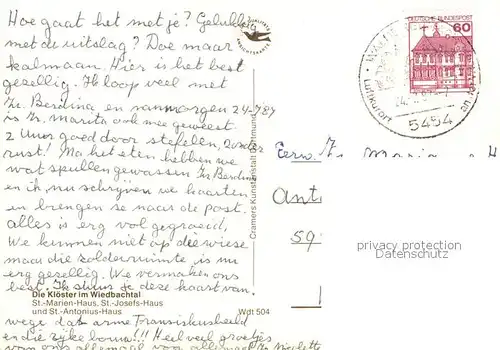 Hoe gaat het met je? Gelukkig
met de uitslag? Doe maar
kalmaan. Hier is het best
gezellig. Ik loop veel met
Zr. Berdina en vanmorgen 24-7 84
is Zr. Marita ook mee geweest
2 uur goed door stefelen, zonder
rust! Na het eten hebben we
wat spullen gewassen Zr Berdina
en ik, nu schrijven we kaarten
en brengen ze naar de post.
alles is erg vol gegroeid,
We kunnen niet op die wiese
maar die zolderruimte is nu
erg gezellig. We vermaken ons
best. Ik stuur je deze kaart van-
Die Klöster im Wiedbachtal
St.-Marien-Haus, St.-Josefs-Haus
und St.-Antonius-Haus
Wdt 504
wege dat arme Fransiskusbeeld
en die rijke bouw!!! Heel veel groetjes
van ons allemaal voor allemaal Zr Nicolette
Cramers Kunstanstalt Dortmund
DEUTSCHE BUNDESPOST
60
Luftkurort
5454
Eerw. Zr. Maria
Ant
59
privacy protection
Datenschutz